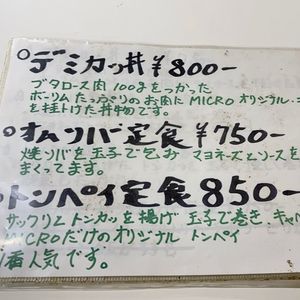 °デミカツ丼 ¥800-
ブタロース肉100gをつかった
ボーリムたっぷりのお肉にMICROオリジナル
を掛けた丼物です。
°オムソバ定食 ¥750-
焼ソバを玉子で包み マヨネーズとソースを
まくってます。
トンペイ定食 850-
サックリとトンカツを揚げ 玉子で巻き キャ
MICROだけのオリジナル トンペイ
1番人気です。